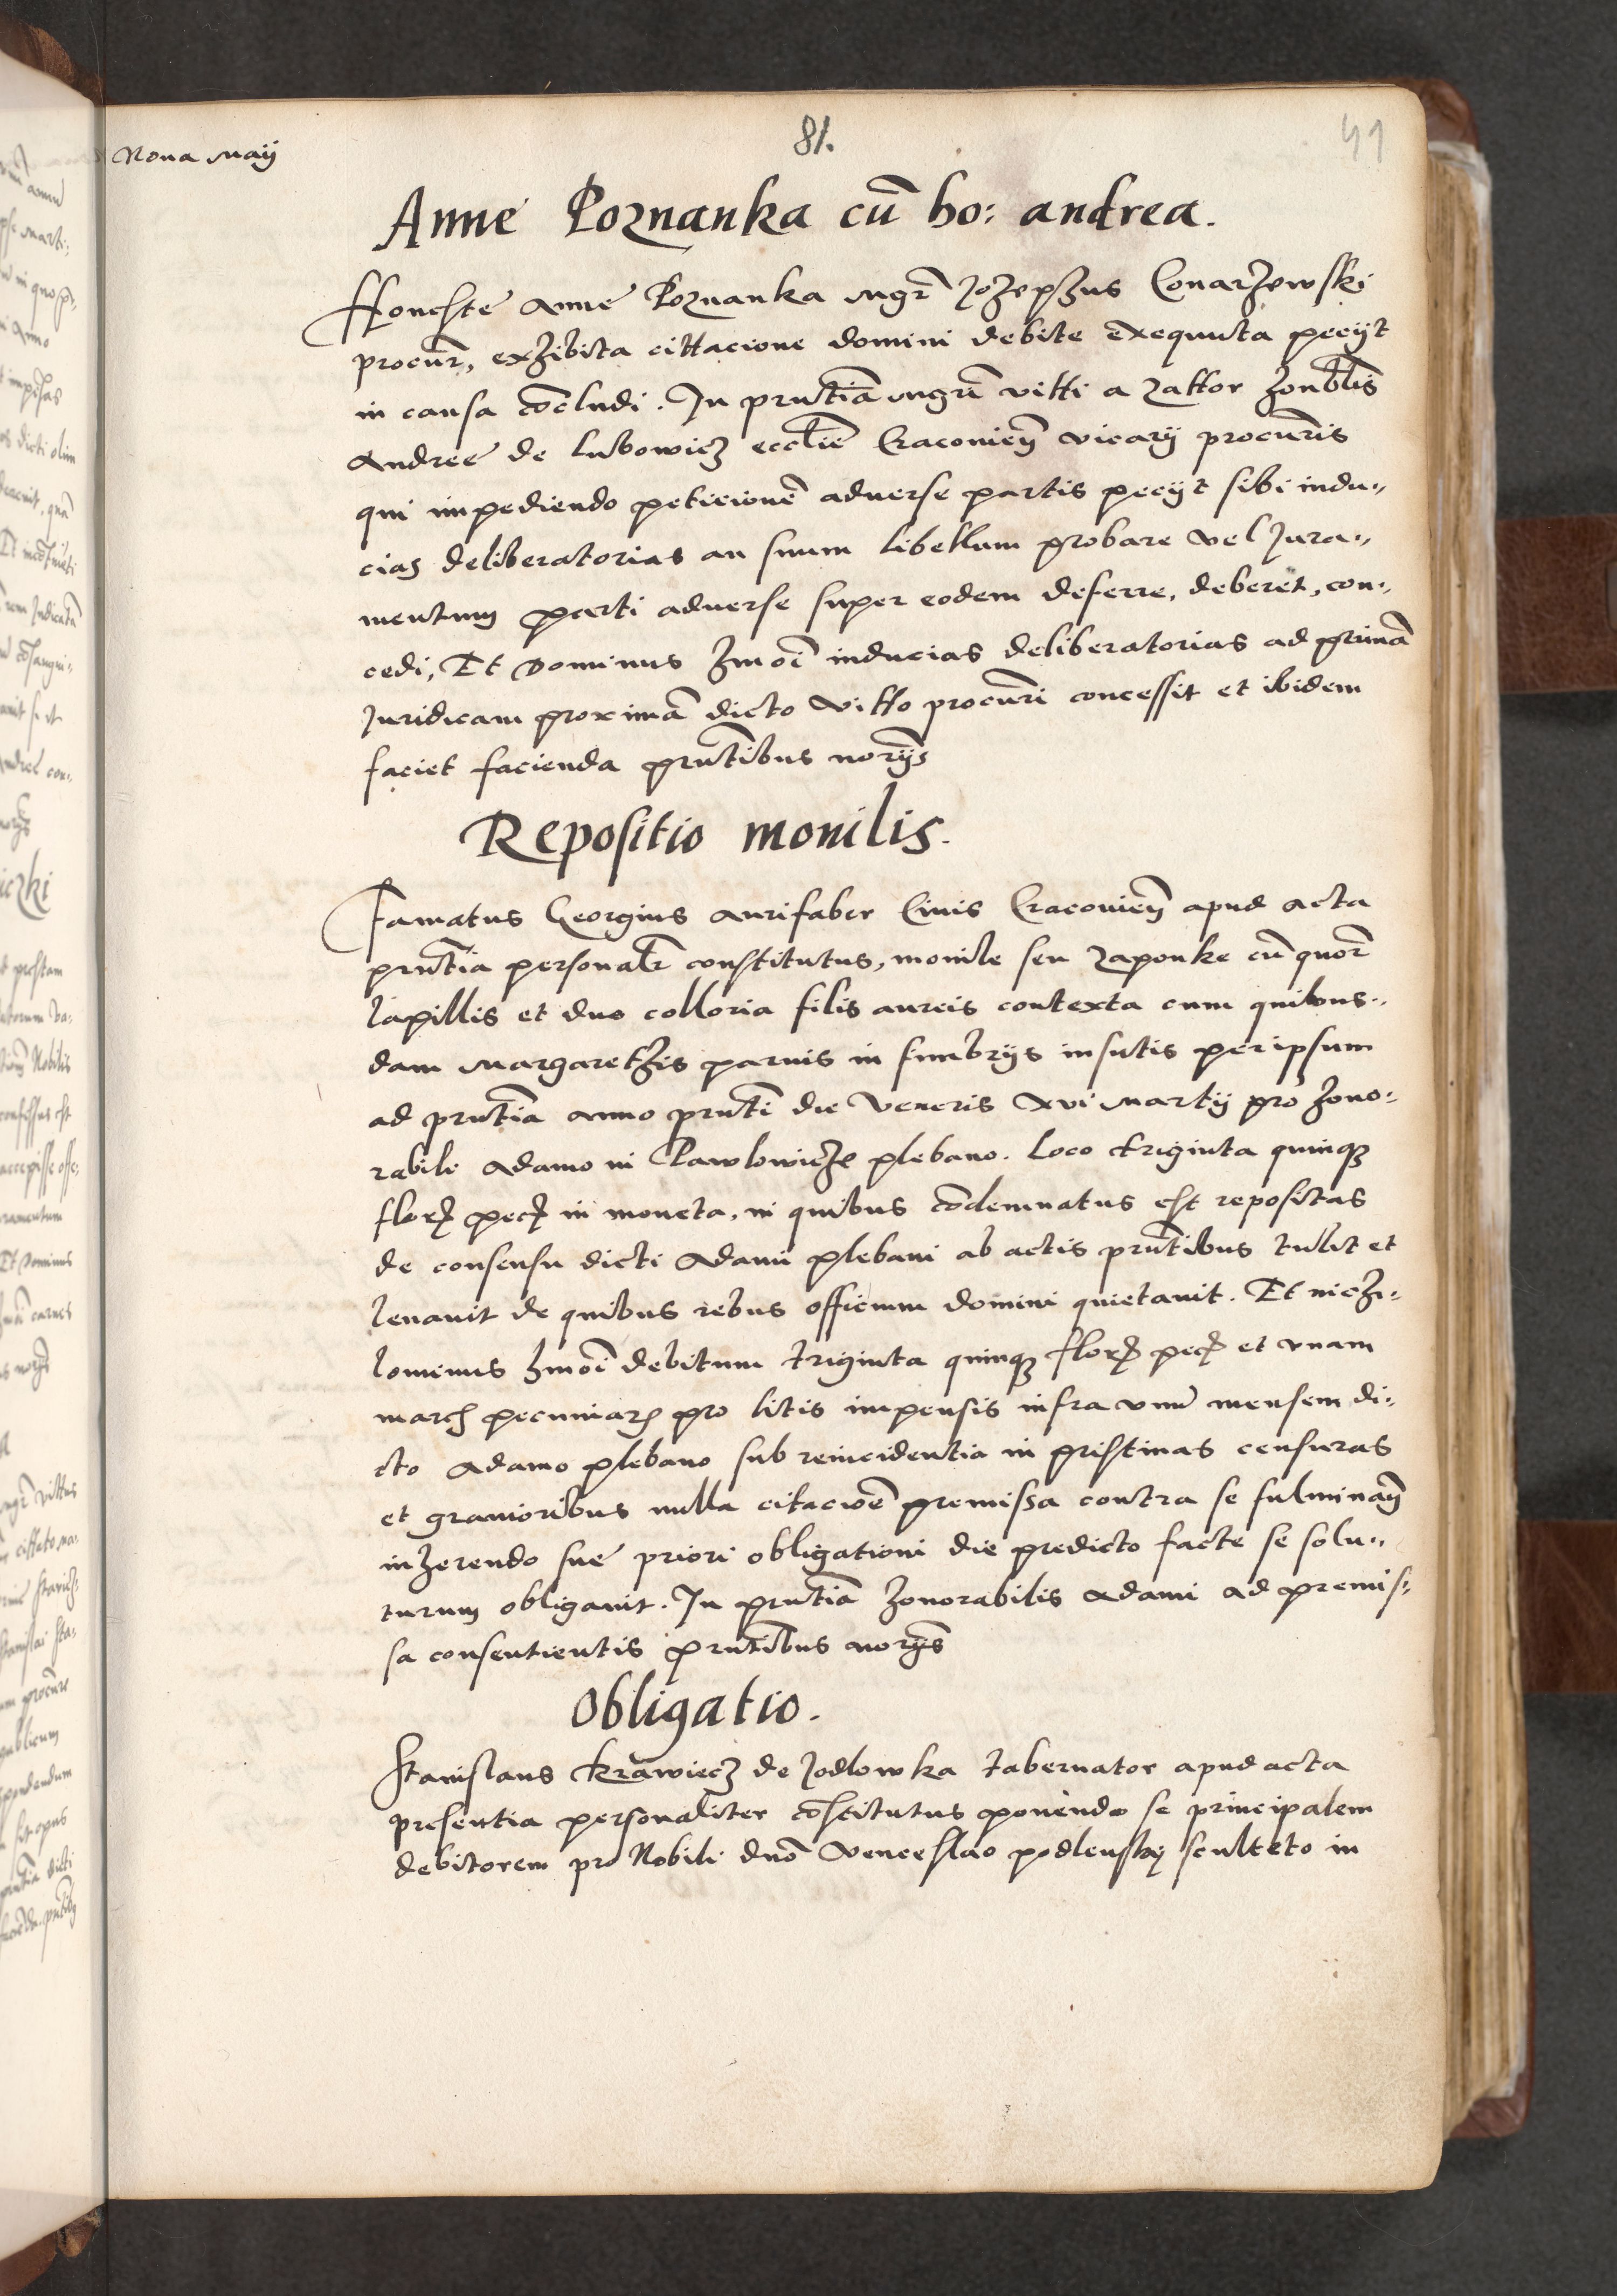 81.
41
Nona Maij
Anne Poznanka cū ho: andrea.
Honeste Anne Poznanka mgr̄ Jozephus Conarzewski
procur̄, exhibita cittacione domini debite exequuta pecijt
in causa cōcludi. In pn̄tia mgr̄i vitti a Zattor honbl̄is
Andree de lubowicz eccl̄ie Cracovien̄ vicarij procur̄is
qui impediendo peticionē adverse partis pecijt sibi indu„
cias deliberatorias an suum libellum probare vel Jura„
mentum parti adverse super eodem deferre, deberet, con„
cedi, Et Dominus hmōi inducias deliberatorias ad primā
Juridicam proximā dicto vitto procur̄i concessit et ibidem
faciet facienda pn̄tibus nor̄ijs
Repositio monilis.
Famatus Georgius aurifaber Civis Cracovien̄ apud acta
pn̄tia personalr̄ constitutus, monile seu zaponke cū quor̄
lapillis et duo colloria filis aureis contexta cum quibus„
dam Margarethis parvis in fimbrijs insutis per ipsum
ad pn̄tia anno pn̄ti die Veneris xvi Martij pro hono:
rabile Adamo in Pawlowicze plebano. Loco triginta quinq3
flor̄ pec̄ in moneta, in quibus cōdemnatus est repositas
de consensu dicti Adami plebani ab actis pn̄tibus tulit et
levavit de quibus rebus officium domini quietavit. Et nichi„
lominus hmōi debitum triginta quinq3 flor̄ pec̄ et vnam
march pecuniar̄ pro litis impensis infra vnū mensem di„
cto Adamo plebano sub reincidentia in pristinas censuras
et gravioribus nulla citaciōe premissa contra se fulminan̄
inherendo sue priori obligationi die predicto facte se solu„
turum obligavit. In pn̄tia honorabilis Adami ad premis„
sa consentientis pn̄tibus nor̄ijs
Obligatio.
Stanislaus krawiecz de Jodlowka tabernator apud acta
presentia personaliter cōstitutus ponendo se principalem
debitorem pro Nobili dnō Venceslao podlensky sculteto in